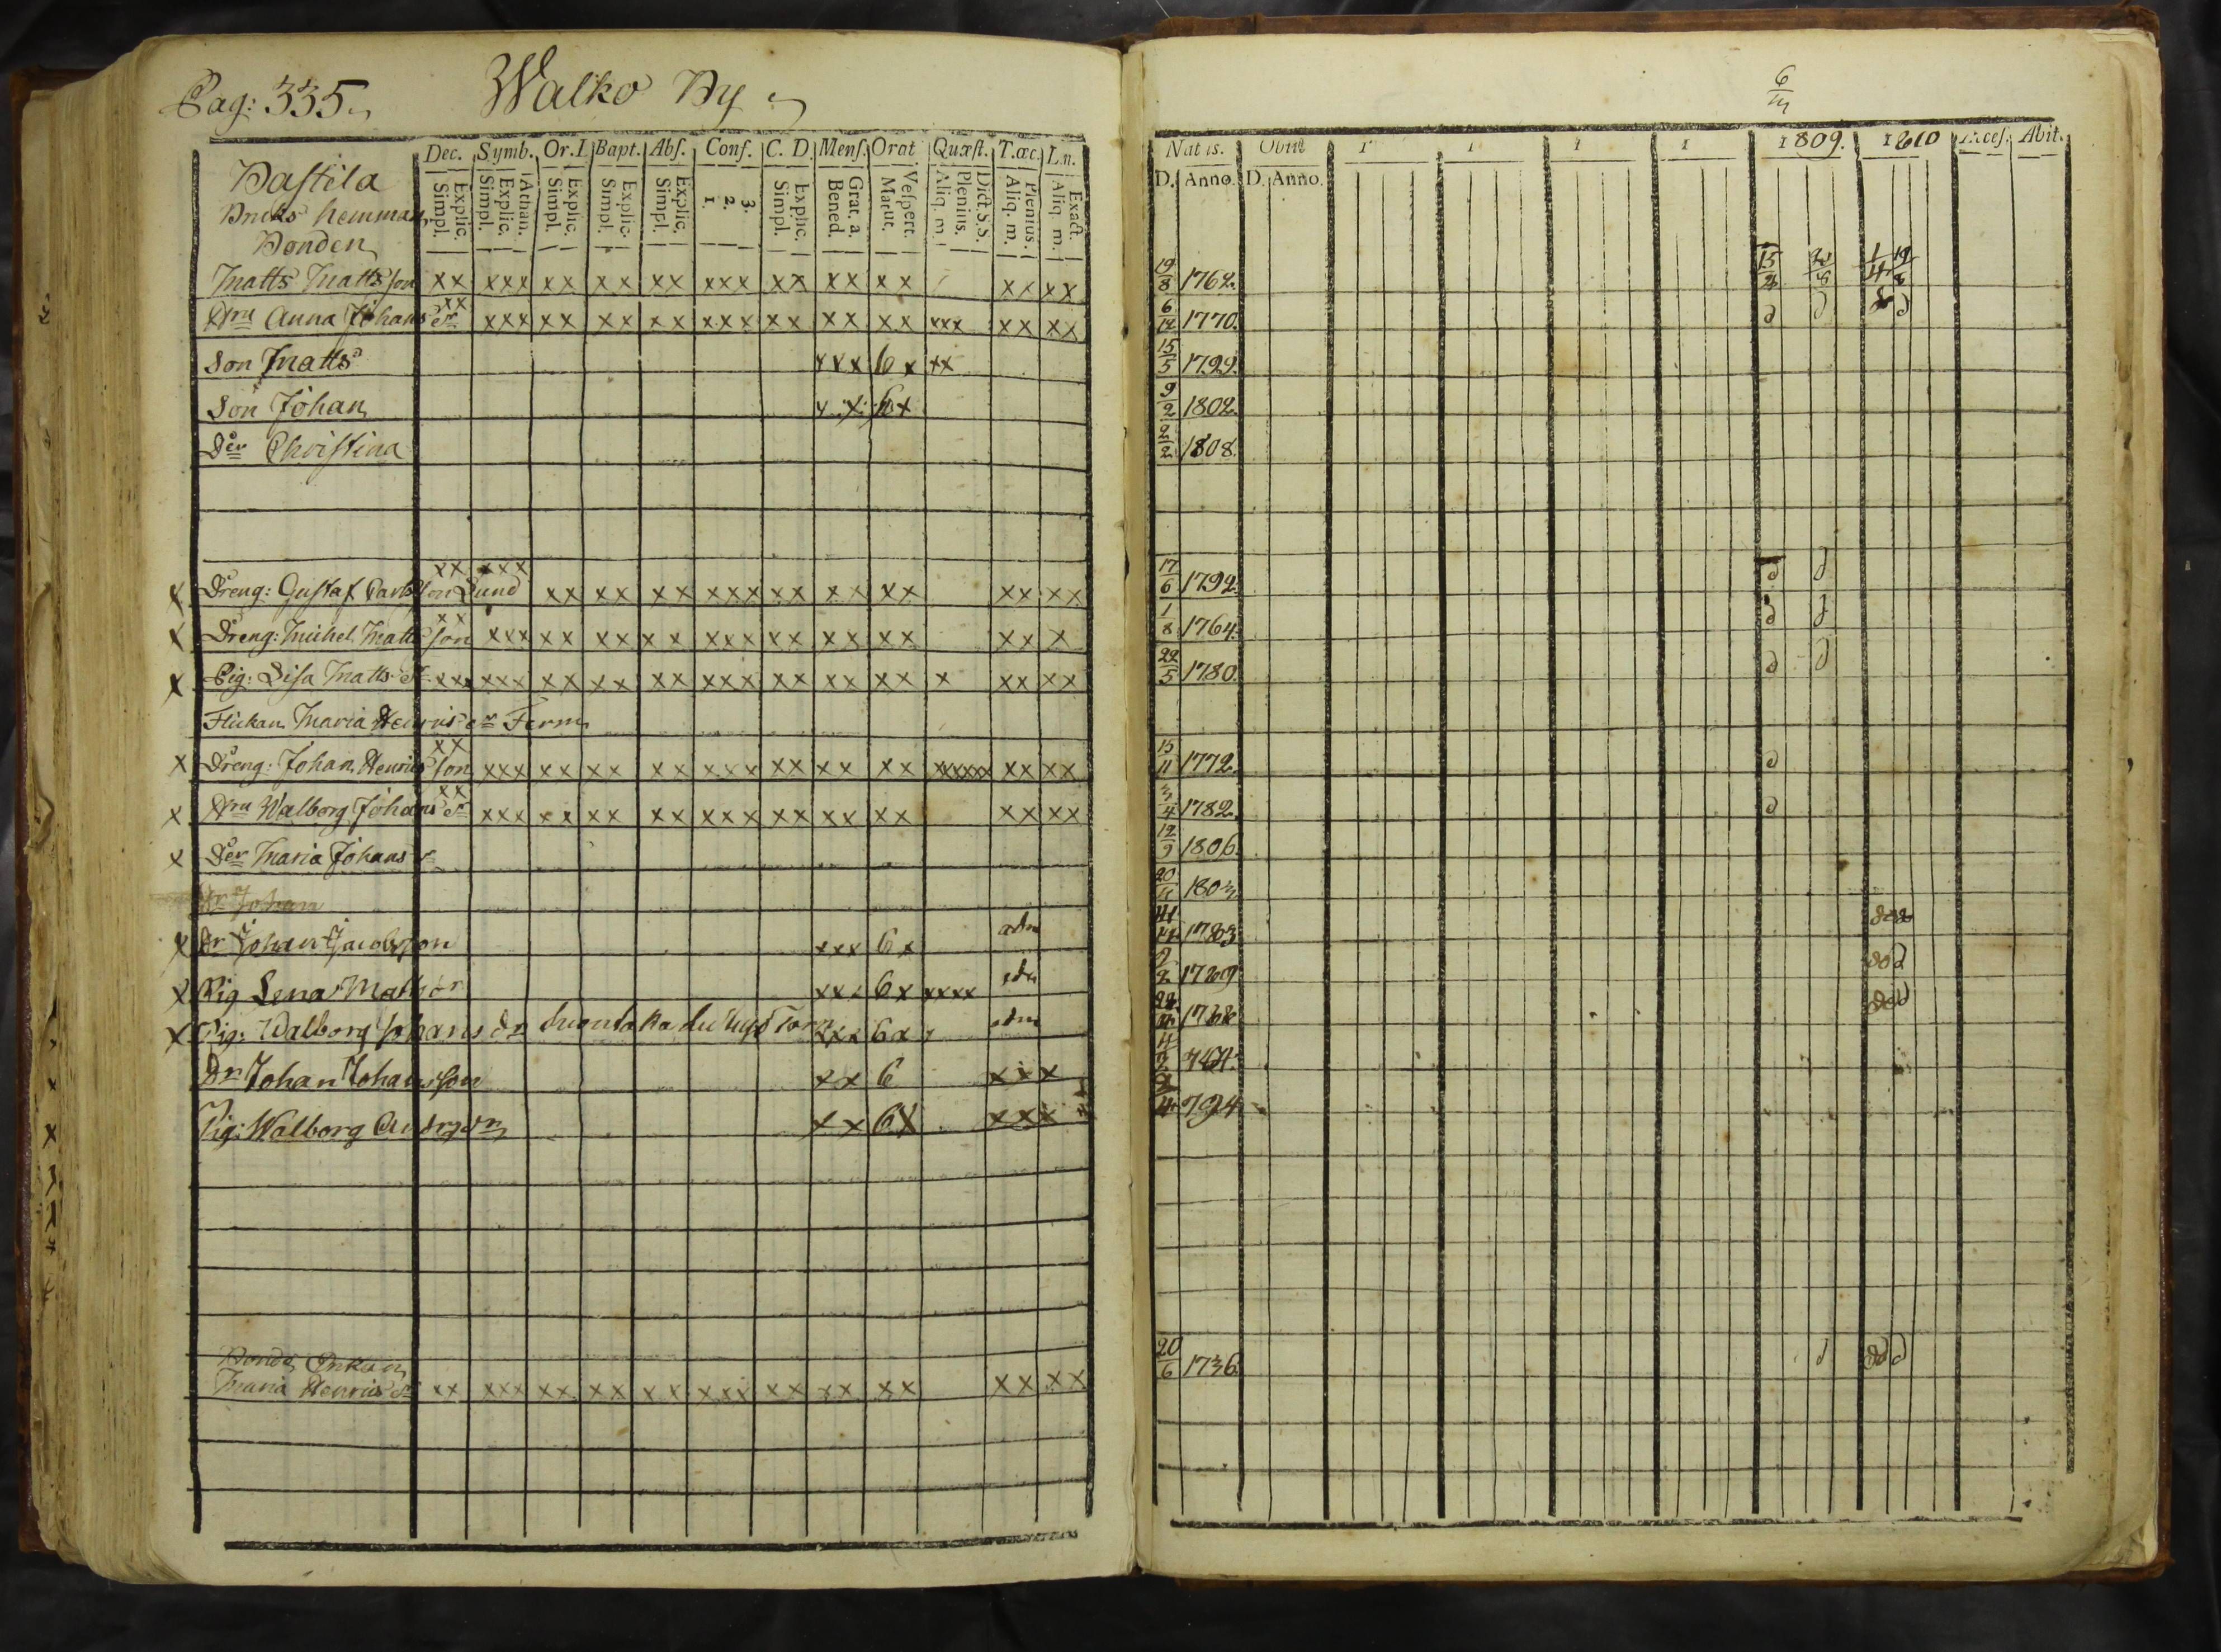 Pag: 335
Walko By
Dec. Symb. Or.I. Bapt. Abs. Conf. C. D. Mens. Orat Quæst. T.œc. Ln.
Explic. Simpl. Athan. Explic. Simpl. Explic. Simpl. Explic. Simpl. Explic. Simpl. 3. 2. 1. Explic. Simpl. Grat. a. Bened. Vespert. Matut. Dict.S.S. Plenius. Aliq. m. Plenius. Aliq. m. Exact. Aliq. m.
Bastila
hemman
Bonden
Matts Mattsson xx xxx xx xx xx xxx xx xx xx xx xx
Hru Anna Johansdr xx xxx xx xx xx xxx xx xx xx xxx xx xx
Son Matts xxx 6 x xx
Son Johan x x 6 x
Der Christina
Dreng: Gustaf Carlsson Lund xx xxx xx xx xx xxx xx xx xx xx xx
Dreng: Michel Mattsson xx xxx xx xx xx xxx xx xx xx xx x
Pig: Lisa Matts dr xxx xxx xx xx xx xxx xx xx xx x xx xx
Flickan Maria Henrics dr Ferm
Dreng: Johan Henricsson xx xxx xx xx xx xxx xx xx xx xxxxx xx xx
Hru Walborg Johans dr xx xxx xx xx xx xxx xx xx xx xx xx
Der Maria Johans dr
Dr Johan
Dr Johan Jacobsson xxx 6 x adm
Pig Lena Matsdr xxx 6 x xxxx adm
Pig: Walborg Johans dr xxx 6 x adm
Dr Johan Johansson xx 6 xxx
Pig: Walborg Andersdr xx 6 x xxx
Bonde Enkan
Maria Henrics dr xx xxx xx xx xx xxx xx xx xx xx xx
Natis. Obiit 1 1 1 1 1809. 1810 Acces. Abit.
D. Anno. D. Anno.
19/8 1762.
6/12 1770.
15/5 1799.
9/2 1802.
2/2 1808.
17/6 1792.
1/8 1764.
22/5 1780.
15/11 1772.
3/4 1782.
12/3 1806.
1803
1783
1769
1768
784
794
20/6 1736.